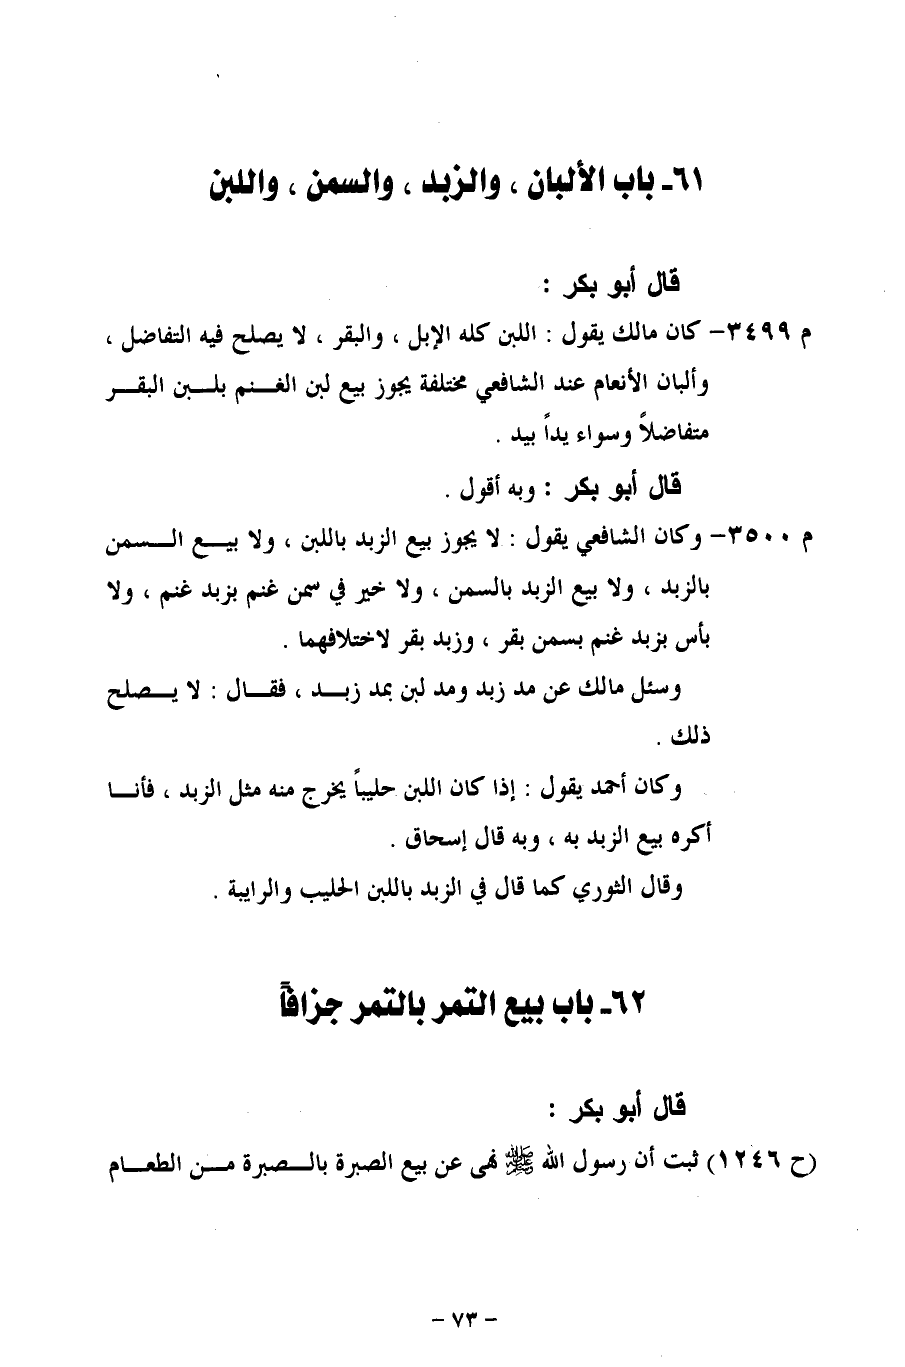 ٦١ـ باب الألبان ، والزبد ، والسمن ، واللبن
قال أبو بكر :
م ٣٤٩٩– كان مالك يقول : اللبن كله الإبل ، والبقر ، لا يصلح فيه التفاضل ،
وألبان الأنعام عند الشافعي مختلفة يجوز بيع لبن الغـــنم بلـــبن البقـــر
متفاضلاً وسواء يداً بيد .
قال أبو بكر : وبه أقول .
م ٣٥٠٠– وكان الشافعي يقول : لا يجوز بيع الزبد باللبن ، ولا بيـــع الـــسمن
بالزبد ، ولا بيع الزبد بالسمن ، ولا خير في سمن غنم بزبد غنم ، ولا
بأس بزبد غنم بسمن بقر ، وزبد بقر لاختلافهما .
وسئل مالك عن مد زبد ومد لبن بمد زبـــد ، فقـــال : لا يـــصلح
ذلك .
وكان أحمد يقول : إذا كان اللبن حليباً يخرج منه مثل الزبد ، فأنـــا
أكره بيع الزبد به ، وبه قال إسحاق .
وقال الثوري كما قال في الزبد باللبن الحليب والرايبة .
٦٢ـ باب بيع التمر بالتمر جزافاً
قال أبو بكر :
(ح ١٢٤٦) ثبت أن رسول الله ﷺ نهى عن بيع الصبرة بالـــصبرة مـــن الطعـــام
– ٧٣ –